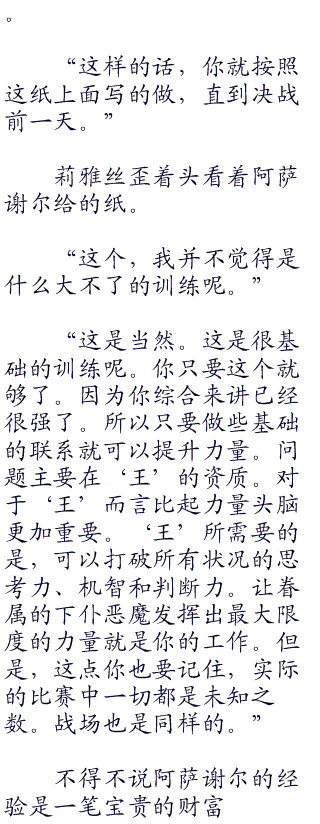 。
“这样的话，你就按照
这纸上面写的做，直到决战
前一天。”
莉雅丝歪着头看着阿萨
谢尔给的纸。
“这个，我并不觉得是
什么大不了的训练呢。”
“这是当然。这是很基
础的训练呢。你只要这个就
够了。因为你综合来讲已经
很强了。所以只要做些基础
的联系就可以提升力量。问
题主要在‘王’的资质。对
于‘王’而言比起力量头脑
更加重要。‘王’所需要的
是，可以打破所有状况的思
考力、机智和判断力。让眷
属的下仆恶魔发挥出最大限
度的力量就是你的工作。但
是，这点你也要记住，实际
的比赛中一切都是未知之
数。战场也是同样的。”
不得不说阿萨谢尔的经
验是一笔宝贵的财富